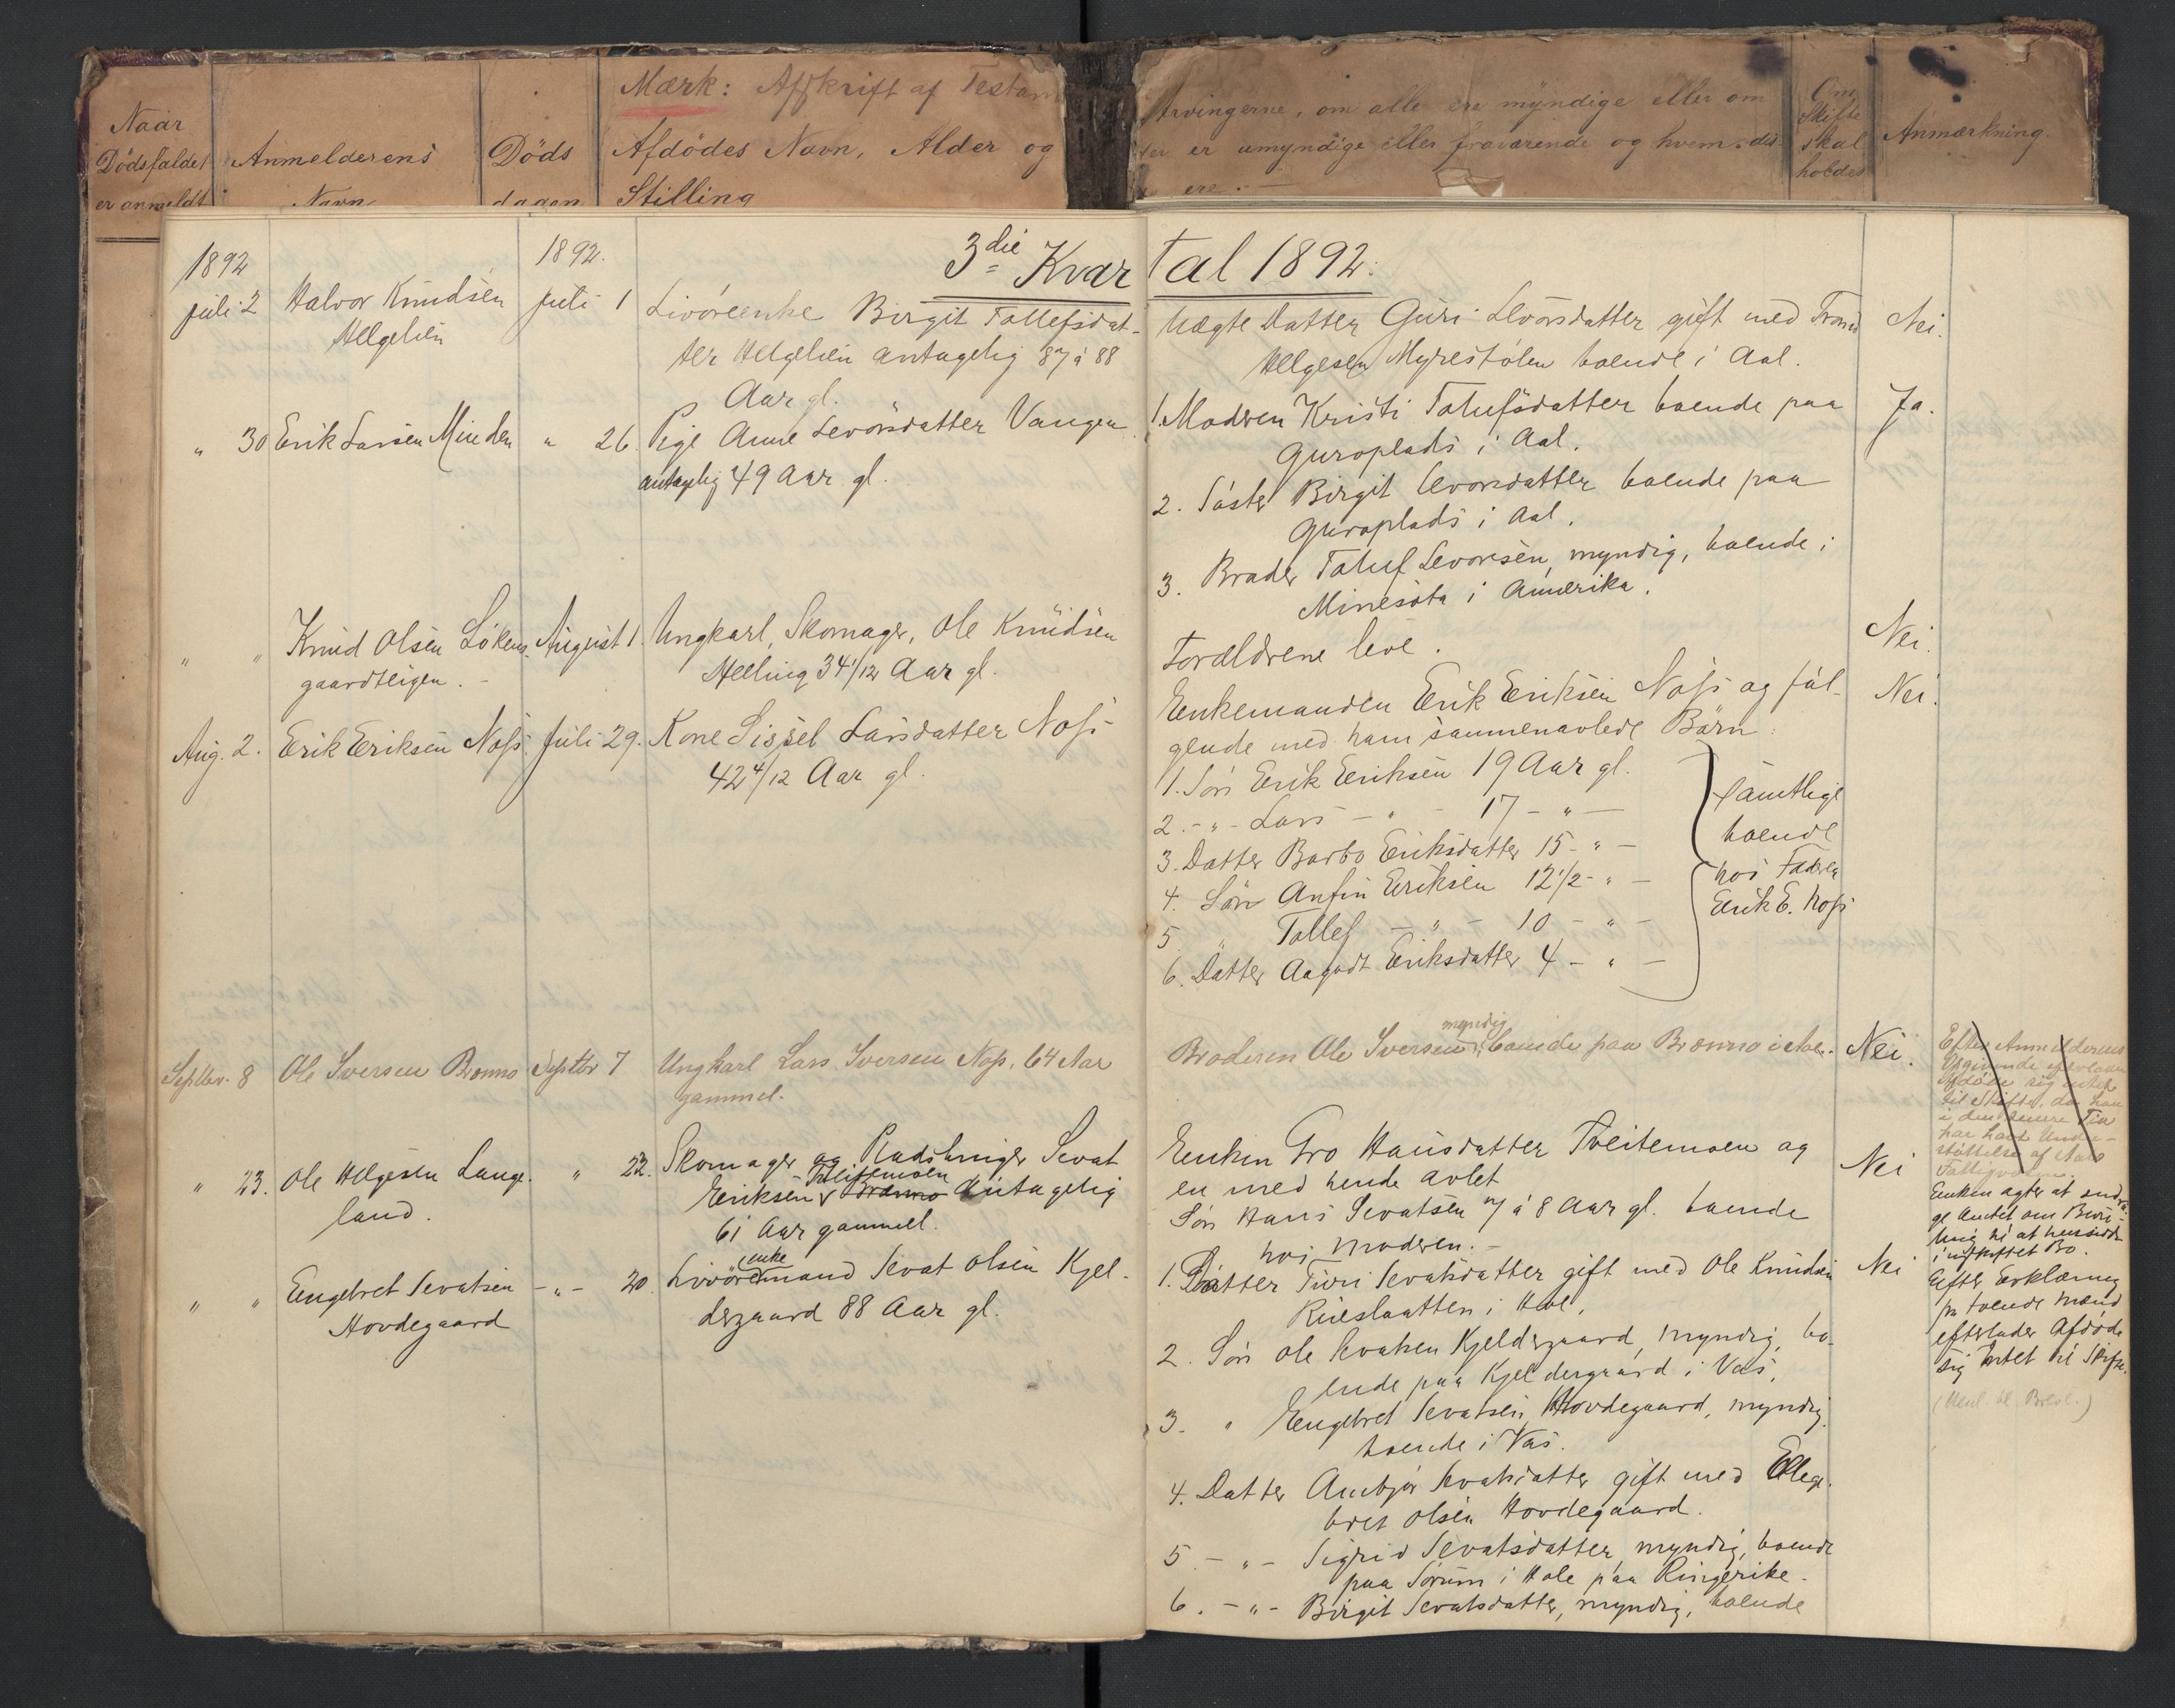 Mærk: Afskrift af
Naar
Dödsfaldet
er anmeldt
Anmelderens
Navn
Döds
dagen
Afdödes Navn, Alder og
Stilling
Arvingerne, om alle ere myndige eller om
er umyndige eller fraværende og hvem
ere. —
Om
Skifte
skal
holdes
Anmærkning.
3die Kvartal 1892.
1892
Juli 2
Halvor Knudsen
Helgelien
1892.
Juli 1
Livöreenke Birgit Tollefsdat-
ter Helgelien antagelig 87 à 88
Aar gl.
Uægte Datter Guri Levorsdatter gift med Trond
Helgesen Myrestölen boende i Aal.
Nei.
" 30
Erik Larsen Minden
" 26.
Pige Anne Levorsdatter Vangen
antagelig 49 Aar gl.
1. Modren Kristi Tolufsdatter boende paa
Guroplads i Aal.
2. Söster Birgit Levorsdatter boende paa
Guroplads i Aal.
3. Broder Toluf Levorsen, myndig, boende i
Minesota i Amerika.
Ja.
" "
Knud Olsen Löken-
gaardteigen. -
August 1.
Ungkarl, Skomager, Ole Knudsen
Helling 34 1/12 Aar gl.
Forældrene leve.
Nei.
Aug. 2.
Erik Eriksen Noss
Juli 29.
Kone Sissel Larsdatter Noss
42 4/12 Aar gl.
Enkemanden Erik Eriksen Noss og föl-
gende med ham sammenavlede Börn:
1. Sön Erik Eriksen 19 Aar gl.
2. - " - Lars - " - 17 - " -
3. Datter Barbo Eriksdatter 15 - " -
4. Sön Anfin Eriksen 12 1/2 - " -
5. " Tollef - " - 10 - " -
6. Datter Aagodt Eriksdatter 4 - " -
samtlige
boende
hos Fadren
Erik E. Noss
Nei.
Septbr. 8
Ole Iversen Bromo
Septbr 7
Ungkarl Lars Iversen Noss, 64 Aar
gammel.
Broderen Ole Iversen, myndig, boende paa Bromo i Aal.
Nei.
Efter Anmelderens
Opgivende efterlader
Afdöde sig intet
til Skifte, da han
i den senere Tid
har havt Under-
støttelse af Aals
Fattigvæsen.
" 23.
Ole Helgesen Lange-
land.
" 22.
Skomager og Pladsbruger Sevat
Eriksen Tveitemoen Bromo Antagelig
61 Aar gammel.
Enken Gro Hansdatter Tveitemoen og
en med hende avlet
Sön Hans Sevatsen 7 à 8 Aar gl. boende
hos Moderen. -
Nei
Enken agter at
Amtet om Bevil-
ling til at hensidde
i uskiftet Bo.
" "
Engebret Sevatsen
Hovdegaard
- " - 20.
Livöreenkemand Sevat Olsen Kjel-
dergaard 88 Aar gl.
1. Datter Turi Sevatsdatter gift med Ole Knudsen
Rueslaatten i Hol.
2. Sön Ole Sevatsen Kjeldergaard, myndig, bo-
ende paa Kjeldergaard i Vas.
3. " Engebret Sevatsen Hovdegaard, myndig
boende i Vas.
4. Datter Ambjör Sevatsdatter gift med Enge-
bret Olsen Hovdegaard.
5. - " - Sigrid Sevatsdatter, myndig, boende
paa Sörum i Hole paa Ringerike.
6. - " - Birgit Sevatsdatter, myndig, boende
Nei
Efter Erklæring
fra tvende Mænd
efterlader Afdöde
sig Intet til Skifte.